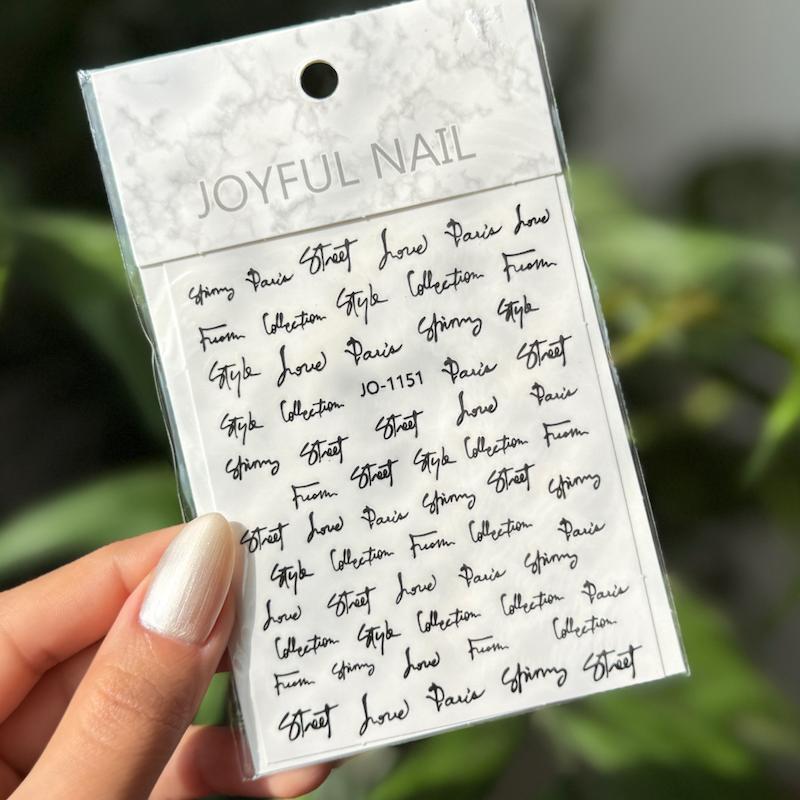 JOYFUL NAIL
Spinny Paris Street Love Paris Love
From Collection Style Collection From
Style Love Paris Spinny Style
Style Collection JO-1151 Paris Street
Spinny Street Street Love Paris
From Street Style Collection From
Street Love Paris Spinny Street Spinny
Style Collection From Collection Paris
Love Street Love Paris Spinny
Collection Style Collection Collection Paris
From Spinny Love From Collection
Street Love Paris Spinny Street